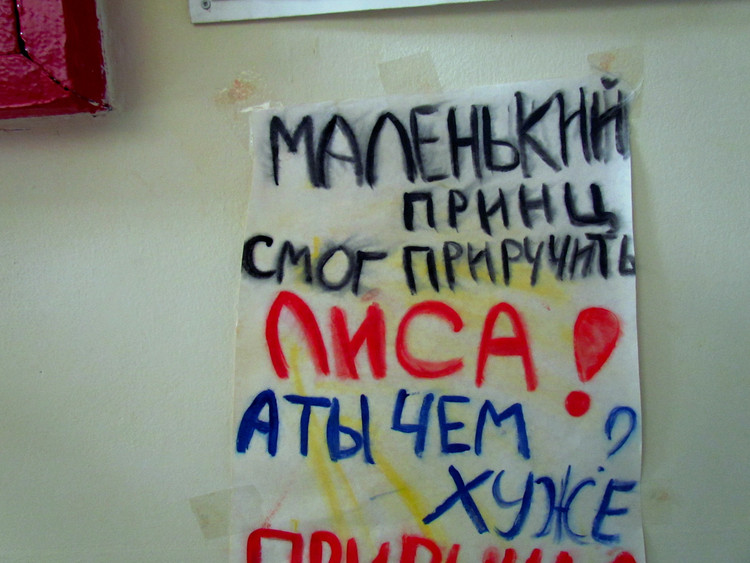 МАЛЕНЬКИЙ
ПРИНЦ
СМОГ ПРИРУЧИТЬ
ЛИСА!
А ТЫ ЧЕМ
ХУЖЕ?